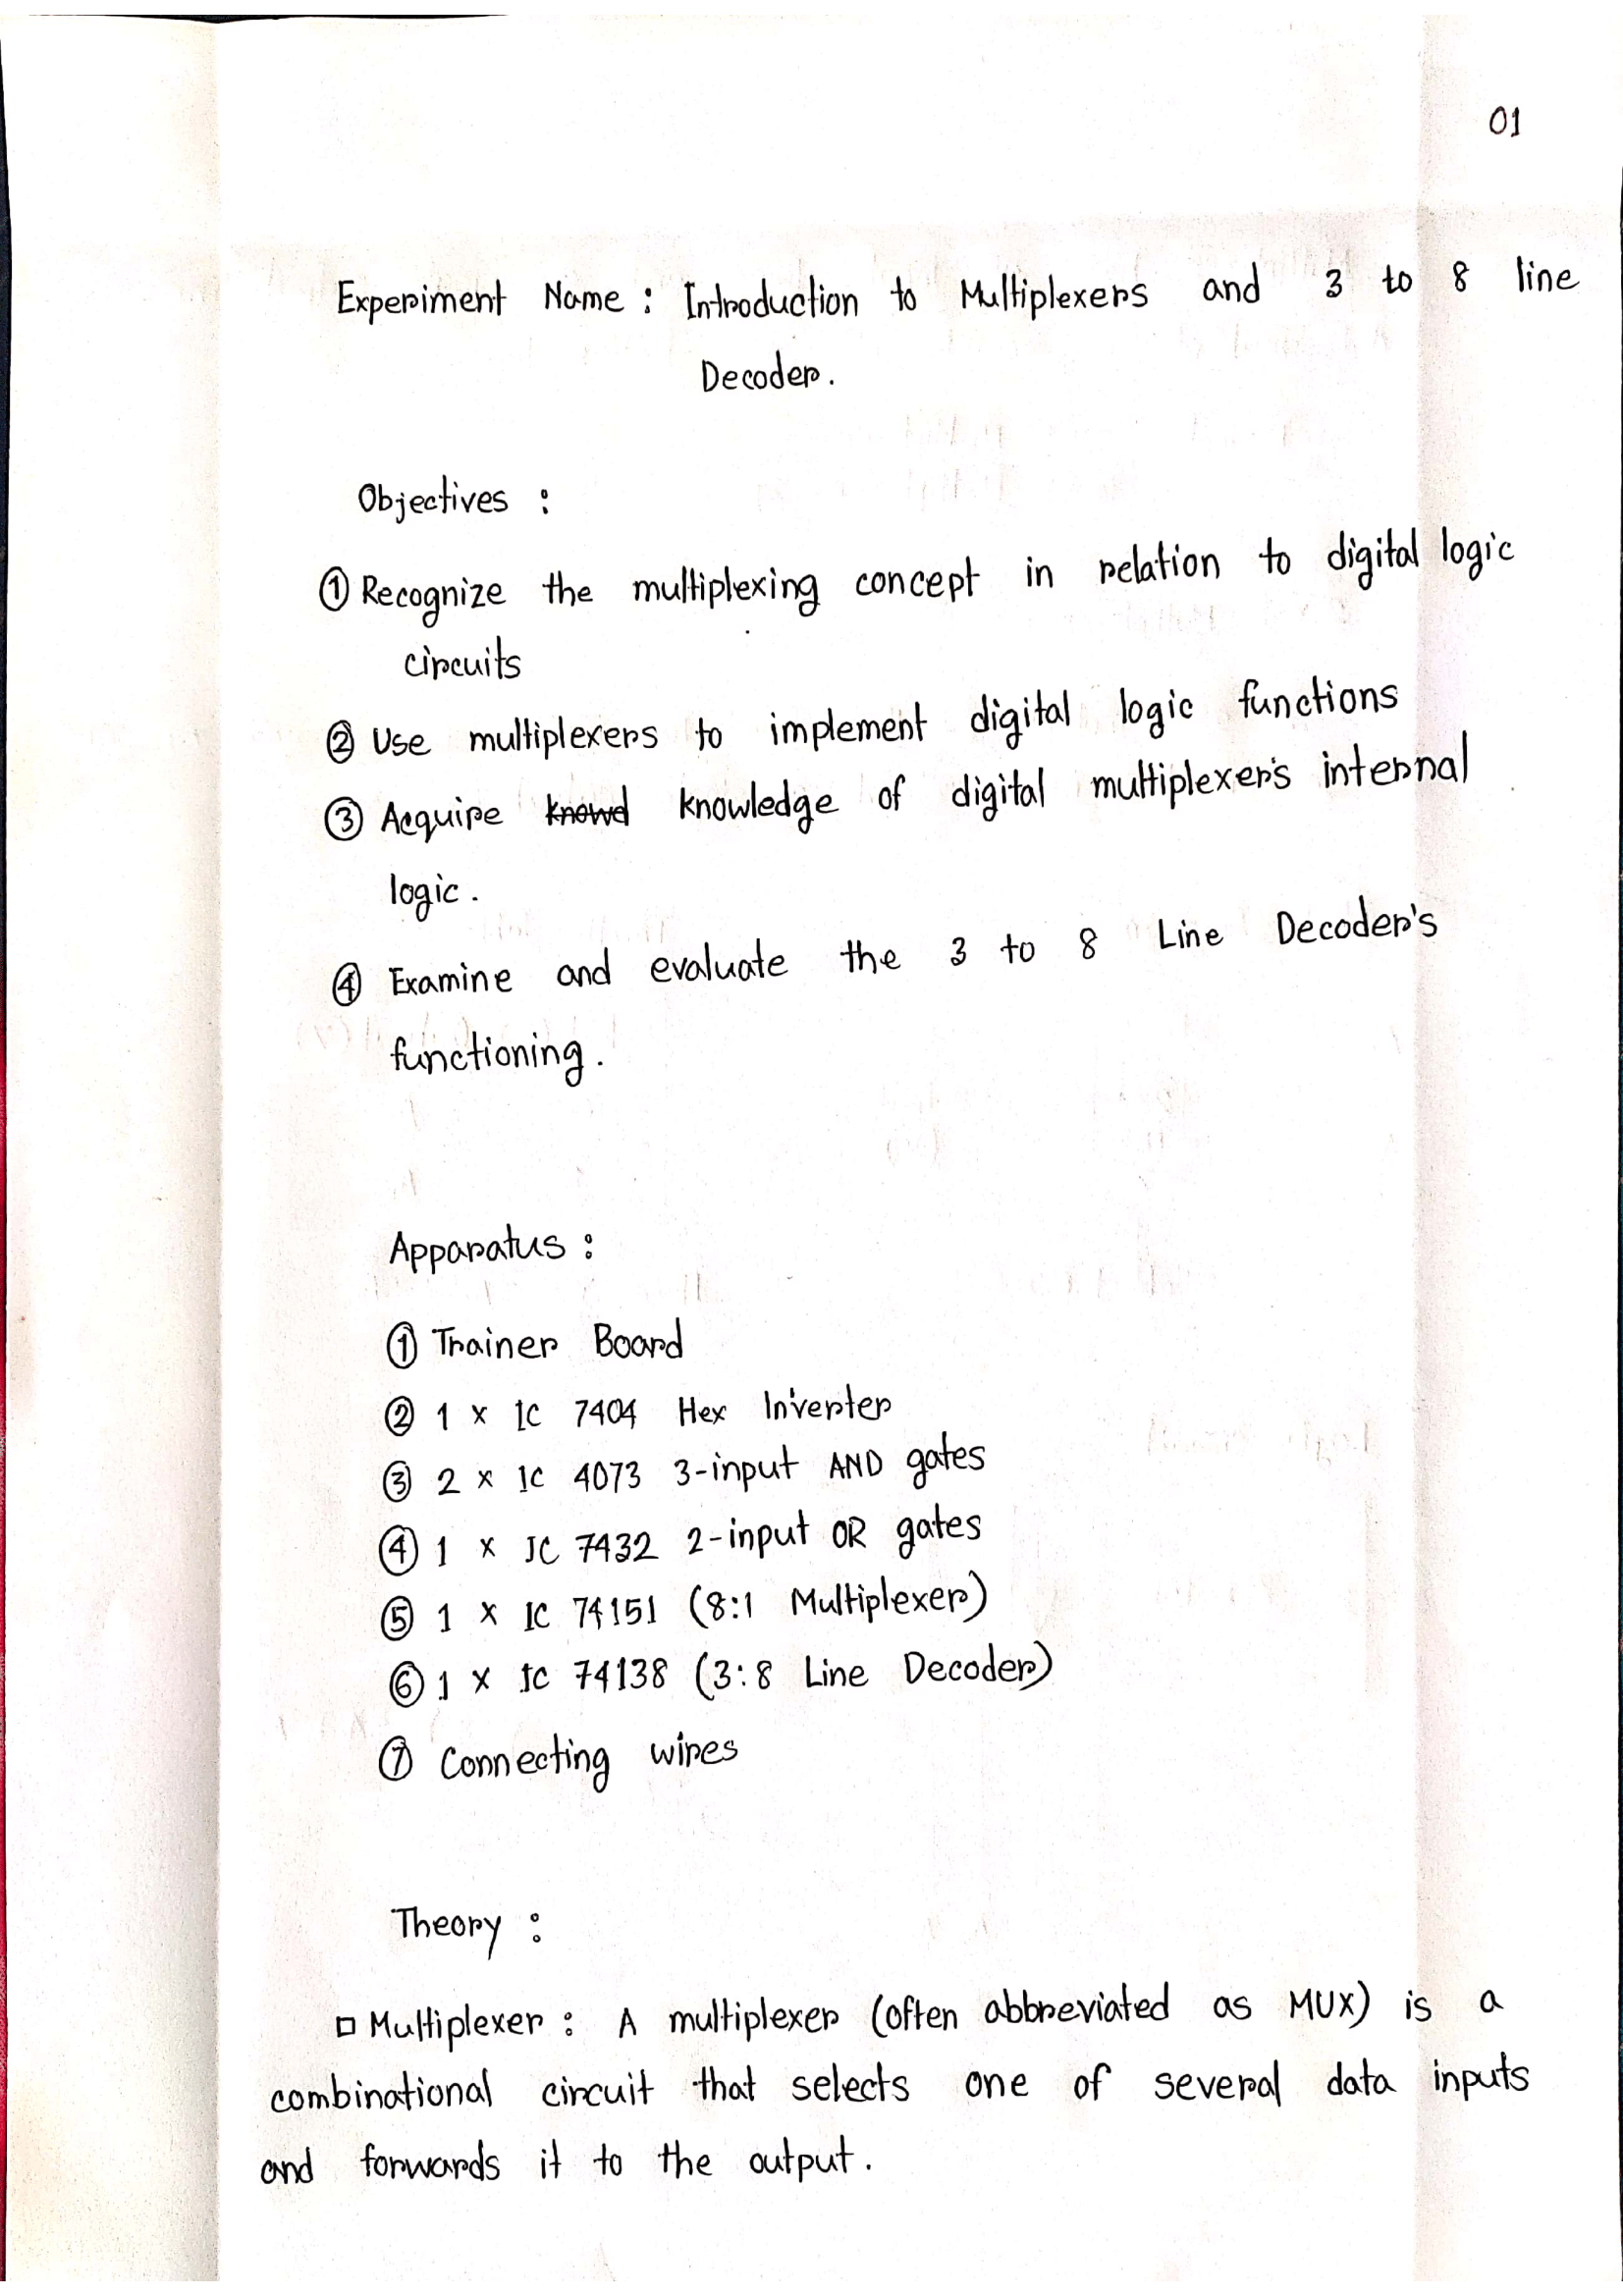 01
Experiment Name : Introduction to Multiplexers and 3 to 8 line
Decoder.
Objectives :
① Recognize the multiplexing concept in relation to digital logic
circuits
② Use multiplexers to implement digital logic functions
③ Acquire knowd knowledge of digital multiplexer's internal
logic.
④ Examine and evaluate the 3 to 8 Line Decoder's
functioning.
Apparatus :
① Trainer Board
② 1 x IC 7404 Hex Inverter
③ 2 x IC 4073 3-input AND gates
④ 1 x IC 7432 2-input OR gates
⑤ 1 x IC 74151 (8:1 Multiplexer)
⑥ 1 x IC 74138 (3:8 Line Decoder)
⑦ Connecting wires
Theory :
□ Multiplexer : A multiplexer (often abbreviated as MUX) is a
combinational circuit that selects one of several data inputs
and forwards it to the output.